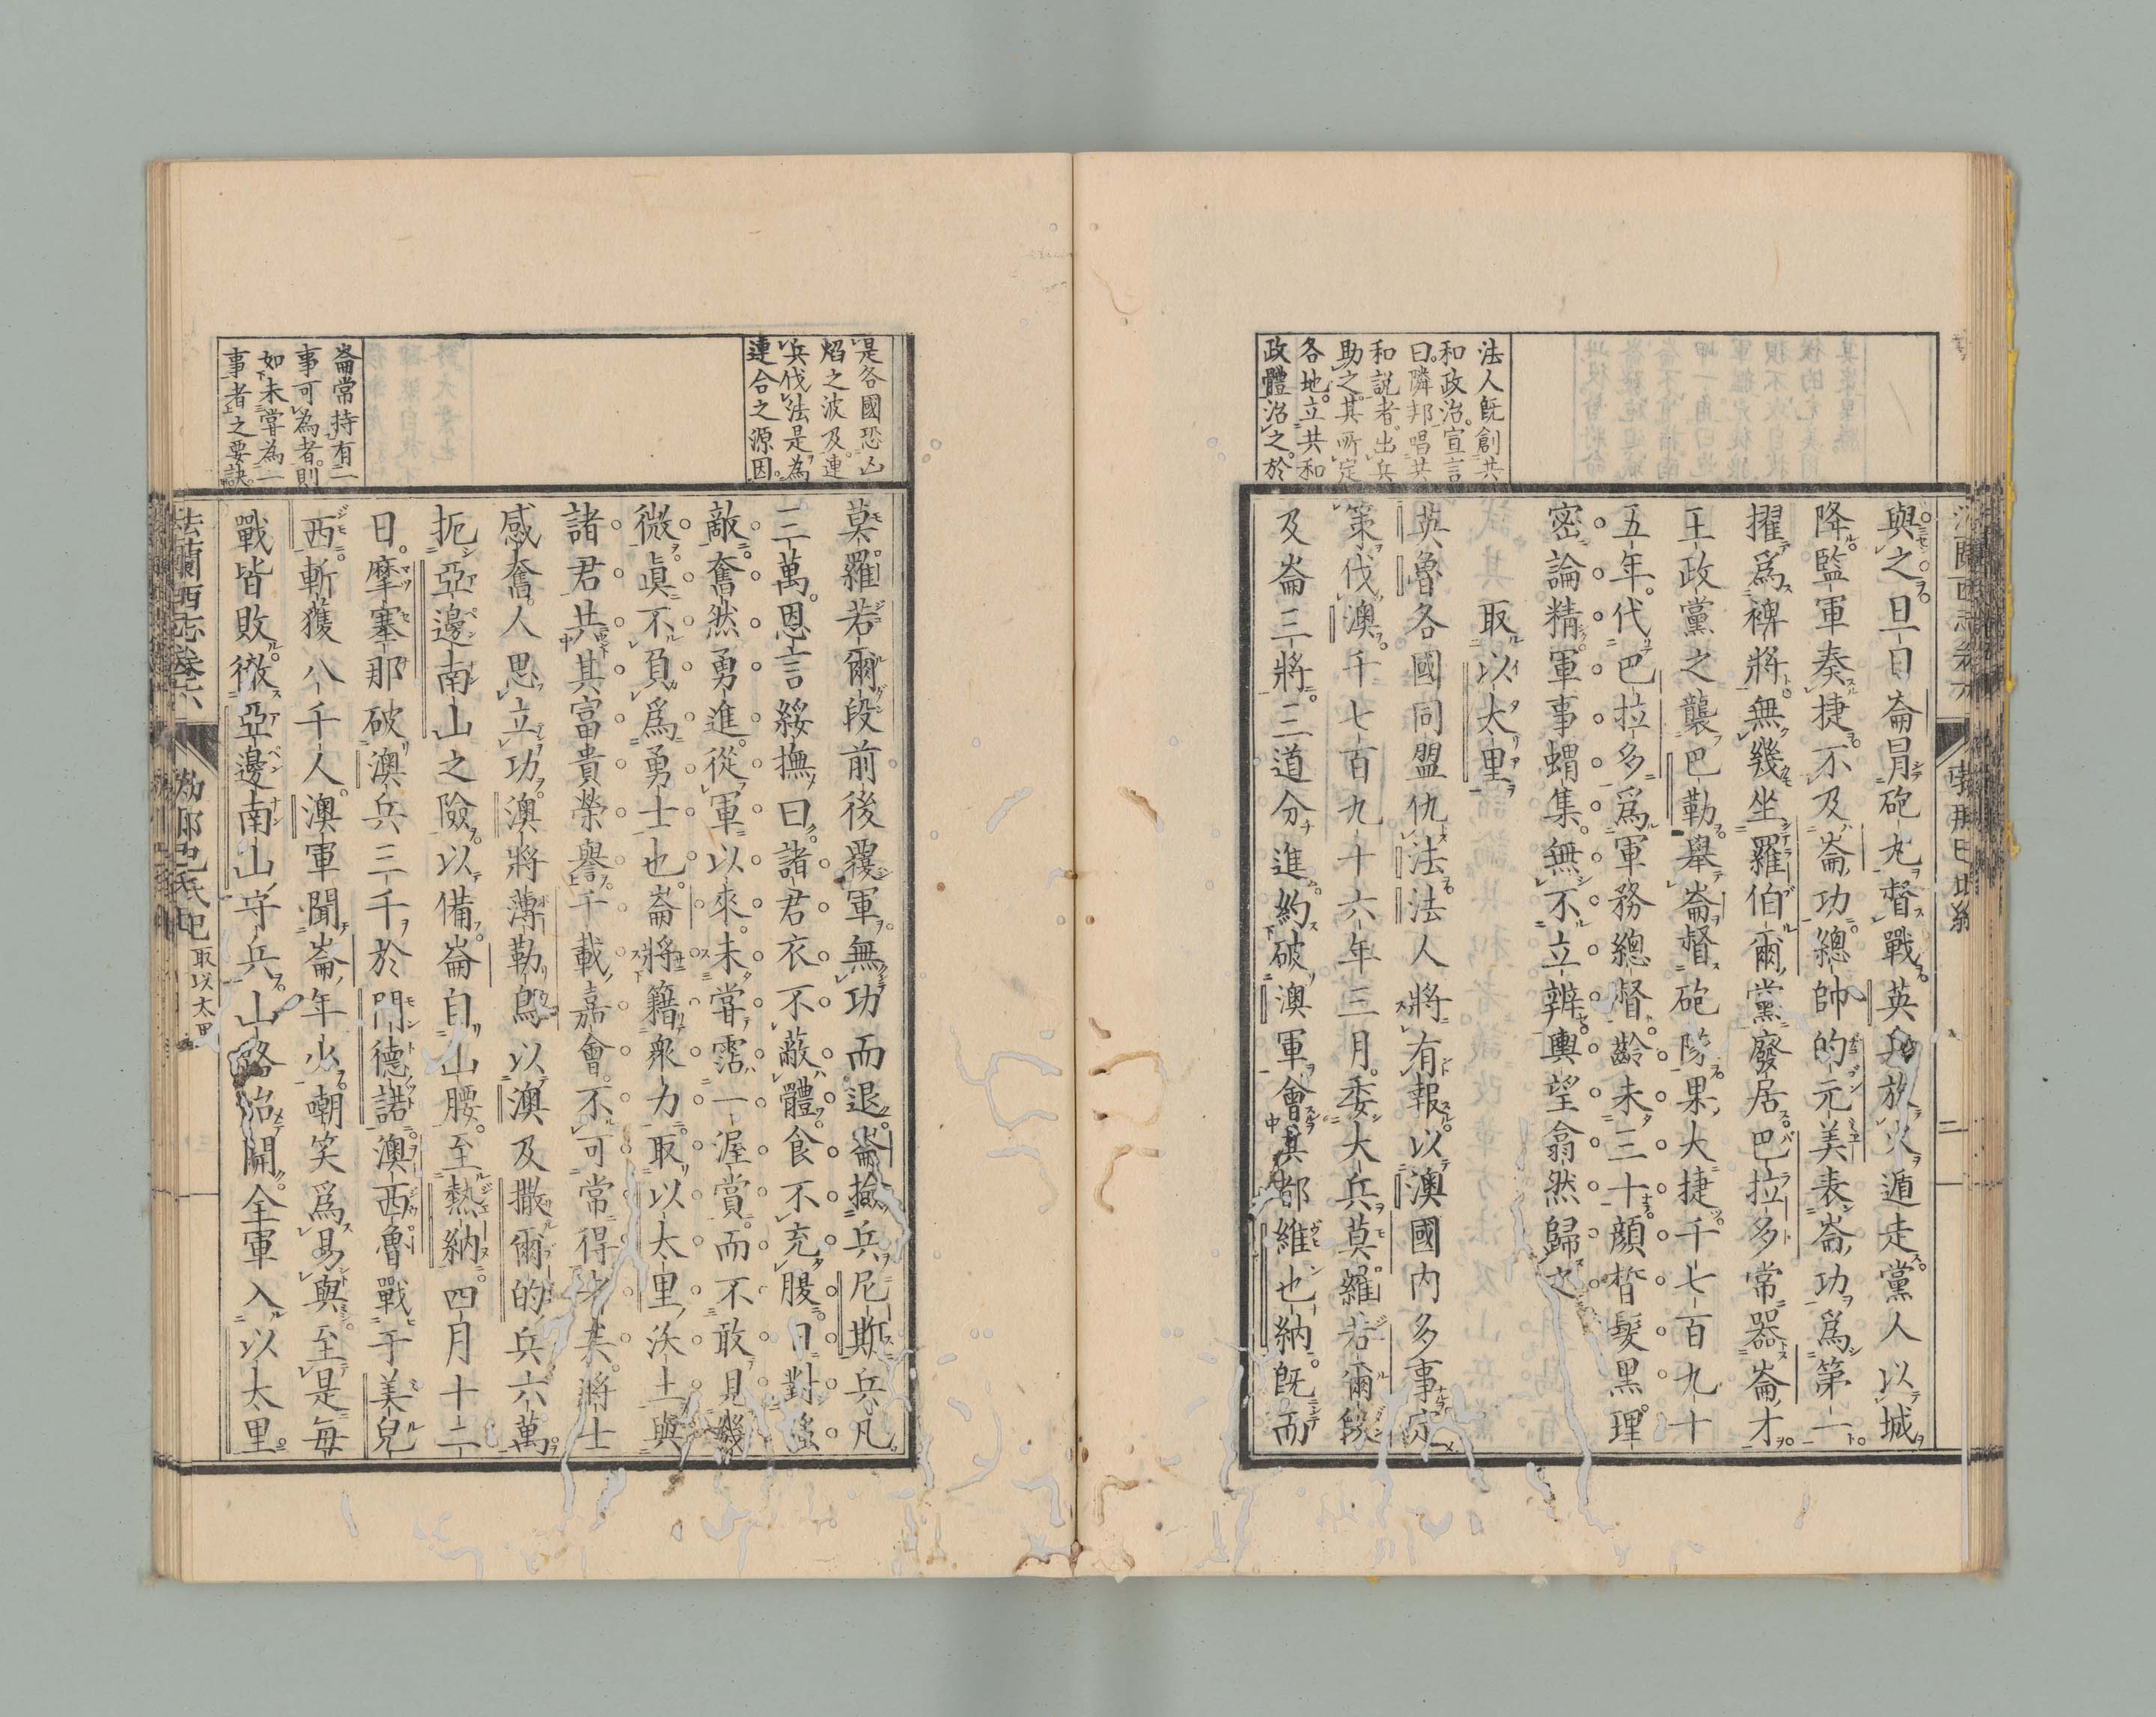 法人既創共
和政治。宣言
曰。隣邦唱共
和説者。出兵
助之。其所定
各地。立共和
政體治之。於
與之。旦日崙冒砲丸督戰。英兵放火遁走。黨人以城
降。監軍奏捷。不及崙功。總帥的元美表崙功爲第一。
擢爲裨將。無幾坐羅伯爾黨廢居。巴拉多常器崙才。
王政黨之襲巴勒。擧崙督砲防。果大捷。千七百九十
五年。代巴拉多爲軍務總督。齡未三十。顔晳髮黑。理
密論精。軍事蝟集。無不立辨。輿望翕然歸之。
取以太里
英魯各國同盟仇法。法人將有報。以澳國内多事。定
策伐澳。千七百九十六年三月。委大兵莫羅若爾段
及崙三將。三道分進。約破澳軍。會其都維也納。既而
是各國恐凶
焰之波及。連
兵伐法。是為
連合之源因。
崙常持有二
事可為者。則
如未嘗為一
事者之要訣。
莫羅若爾段前後覆軍。無功而退。崙撿兵尼斯。兵凡
三萬。恩言綏撫曰。諸君衣不蔽體。食不充腹。日對強
敵。奮然勇進。從軍以來。未嘗霑一渥賞。而不敢見幾
微。眞不負爲勇士也。崙將籍衆力。取以太里沃土。與
諸君共其富貴榮譽。千載嘉會。不可常得者矣。將士
感奮。人思立功。澳將薄勒烏以澳及撒爾的兵六萬。
扼亞邊南山之險。以備崙。自山腰。至熱納。四月十二
日。摩塞那破澳兵三千於門德諾。澳西魯戰于美兒
西。斬獲八千人。澳軍聞崙年少。嘲笑爲易與。至是毎
戰皆敗。徼亞邊南山守兵。山路洽開。全軍入以太里。
法蘭西志卷六
取以太里